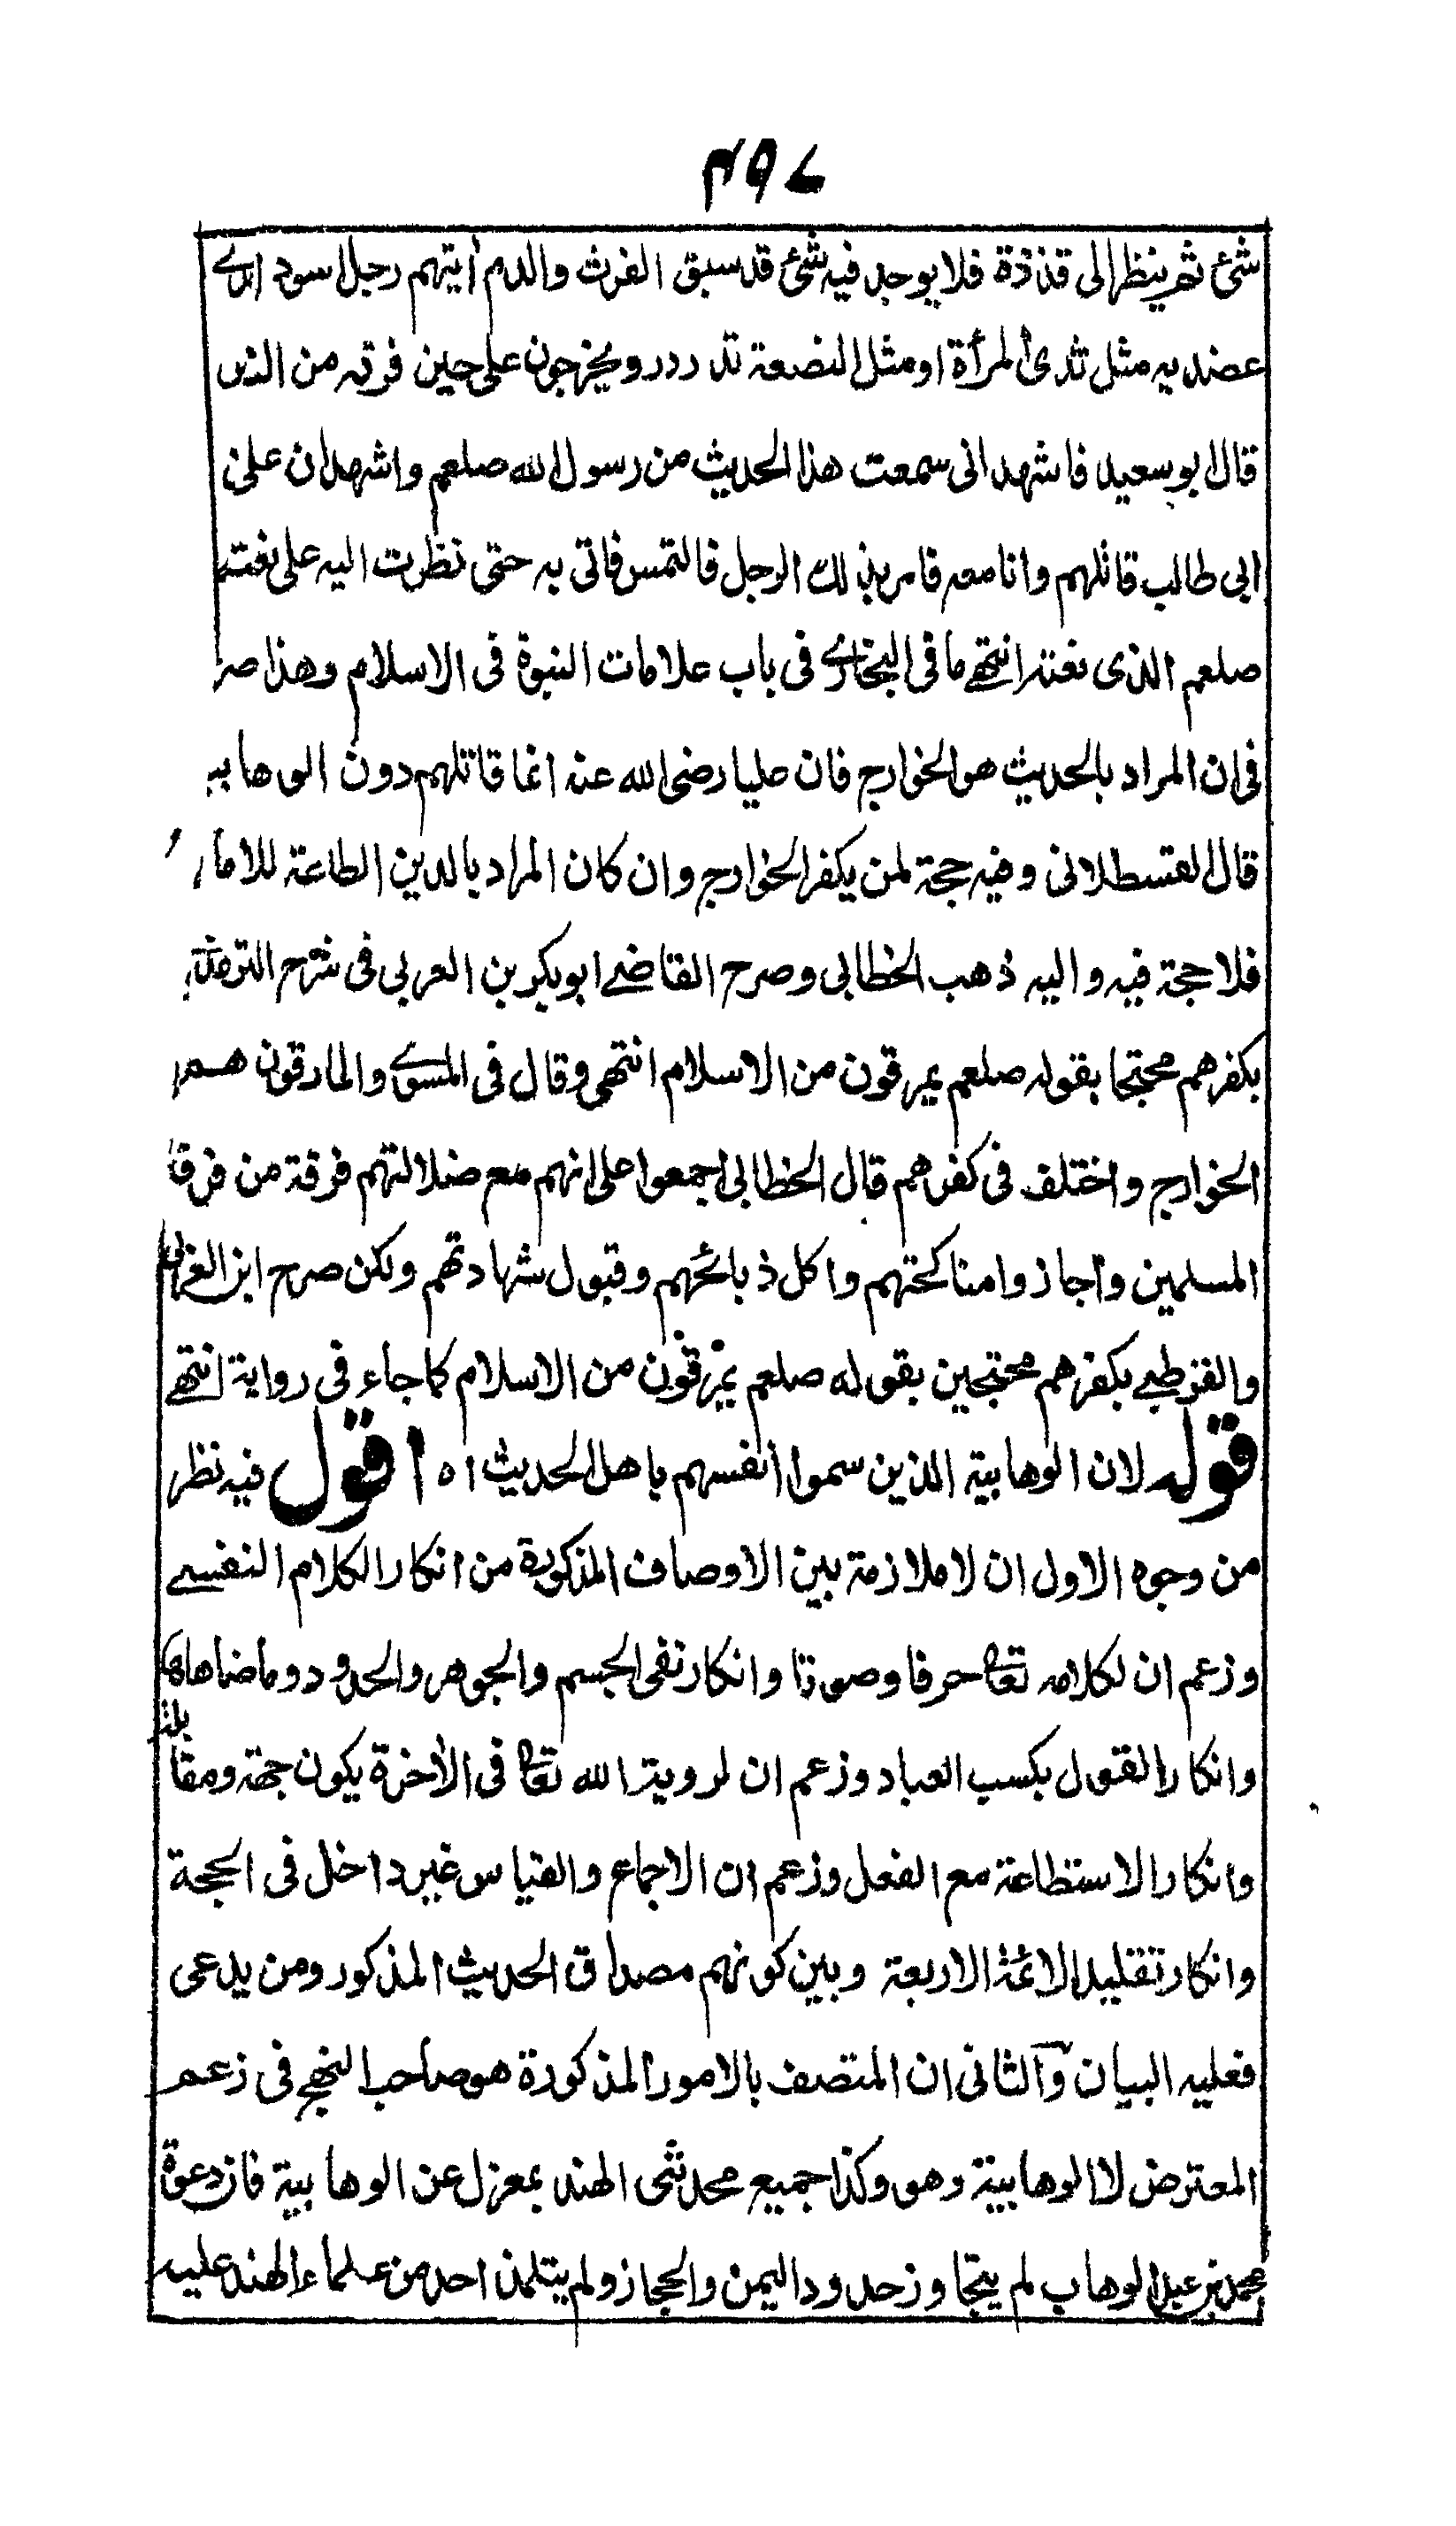 ٤٩٧
شئ ثم ينظر الى قذذة فلا يوجد فيه شئ قد سبق الفرث والدم أيتهم رجل اسود احدى
عضديه مثل ثدى المرأة او مثل البضعة تدردر ويخرجون على حين فرقه من الناس
قال ابو سعيد فاشهد انى سمعت هذا الحديث من رسول الله صلعم واشهد ان على بن
ابى طالب قاتلهم وانا معه فامر بذلك الرجل فالتمس فاتى به حتى نظرت اليه على نعت
صلعم الذى نعته انتهى ما فى البخارى فى باب علامات النبوة فى الاسلام وهذا
فى ان المراد بالحديث هو الخوارج فان عليا رضى الله عنه انما قاتلهم دون الوهابيه
قال القسطلانى وفيه حجة لمن يكفر الخوارج وان كان المراد بالدين الطاعة للامام
فلا حجة فيه واليه ذهب الخطابى وصرح القاضى ابو بكر بن العربى فى شرح الترمذى
بكفرهم محتجا بقوله صلعم يمرقون من الاسلام انتهى وقال فى المسوى والمارقون هم
الخوارج واختلف فى كفرهم قال الخطابى اجمعوا على انهم مع ضلالتهم فرقة من فرق
المسلمين وأجازوا مناكحتهم واكل ذبائحهم وقبول شهادتهم ولكن صرح ابن العربى
والقرطبى بكفرهم محتجين بقوله صلعم يمرقون من الاسلام كما جاء فى رواية انتهى
قوله لان الوهابية الذين سموا أنفسهم باهل الحديث اه اقول فيه نظر
من وجوه الاول ان لا ملازمة بين الاوصاف المذكورة من انكار الكلام النفسى
وزعم ان لكلامه تعالى حرفا وصوتا وانكار نفى الجسم والجوهر والحدود وما ضاهاها
وانكار القول بكسب العباد وزعم ان لروية الله تعالى فى الأخرة يكون جهة ومقابلة
وانكار الاستطاعة مع الفعل وزعم ان الاجماع والقياس غير داخل فى الحجة
وانكار تقليد الائمة الاربعة وبين كونهم مصداق الحديث المذكور ومن يدعى
فعليه البيان والثانى ان المتصف بالامور المذكورة هو صاحب النهج فى زعم
المعترض لا الوهابية وهو وكذا جميع محدثى الهند بمعزل عن الوهابية فان دعوة
محمد بن عبد الوهاب لم يتجاوز حدود اليمن والحجاز ولم يتلمذ احد من علماء الهند عليه